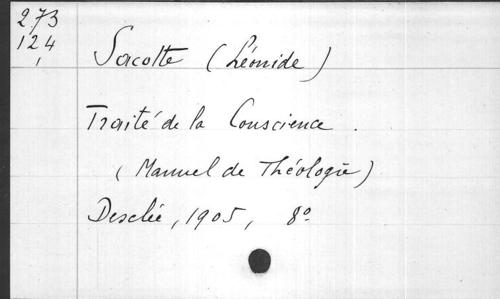 273
124
Sacotte (Léonide)
Traité de la Conscience.
(Manuel de Théologie)
Desclée, 1905, 8º